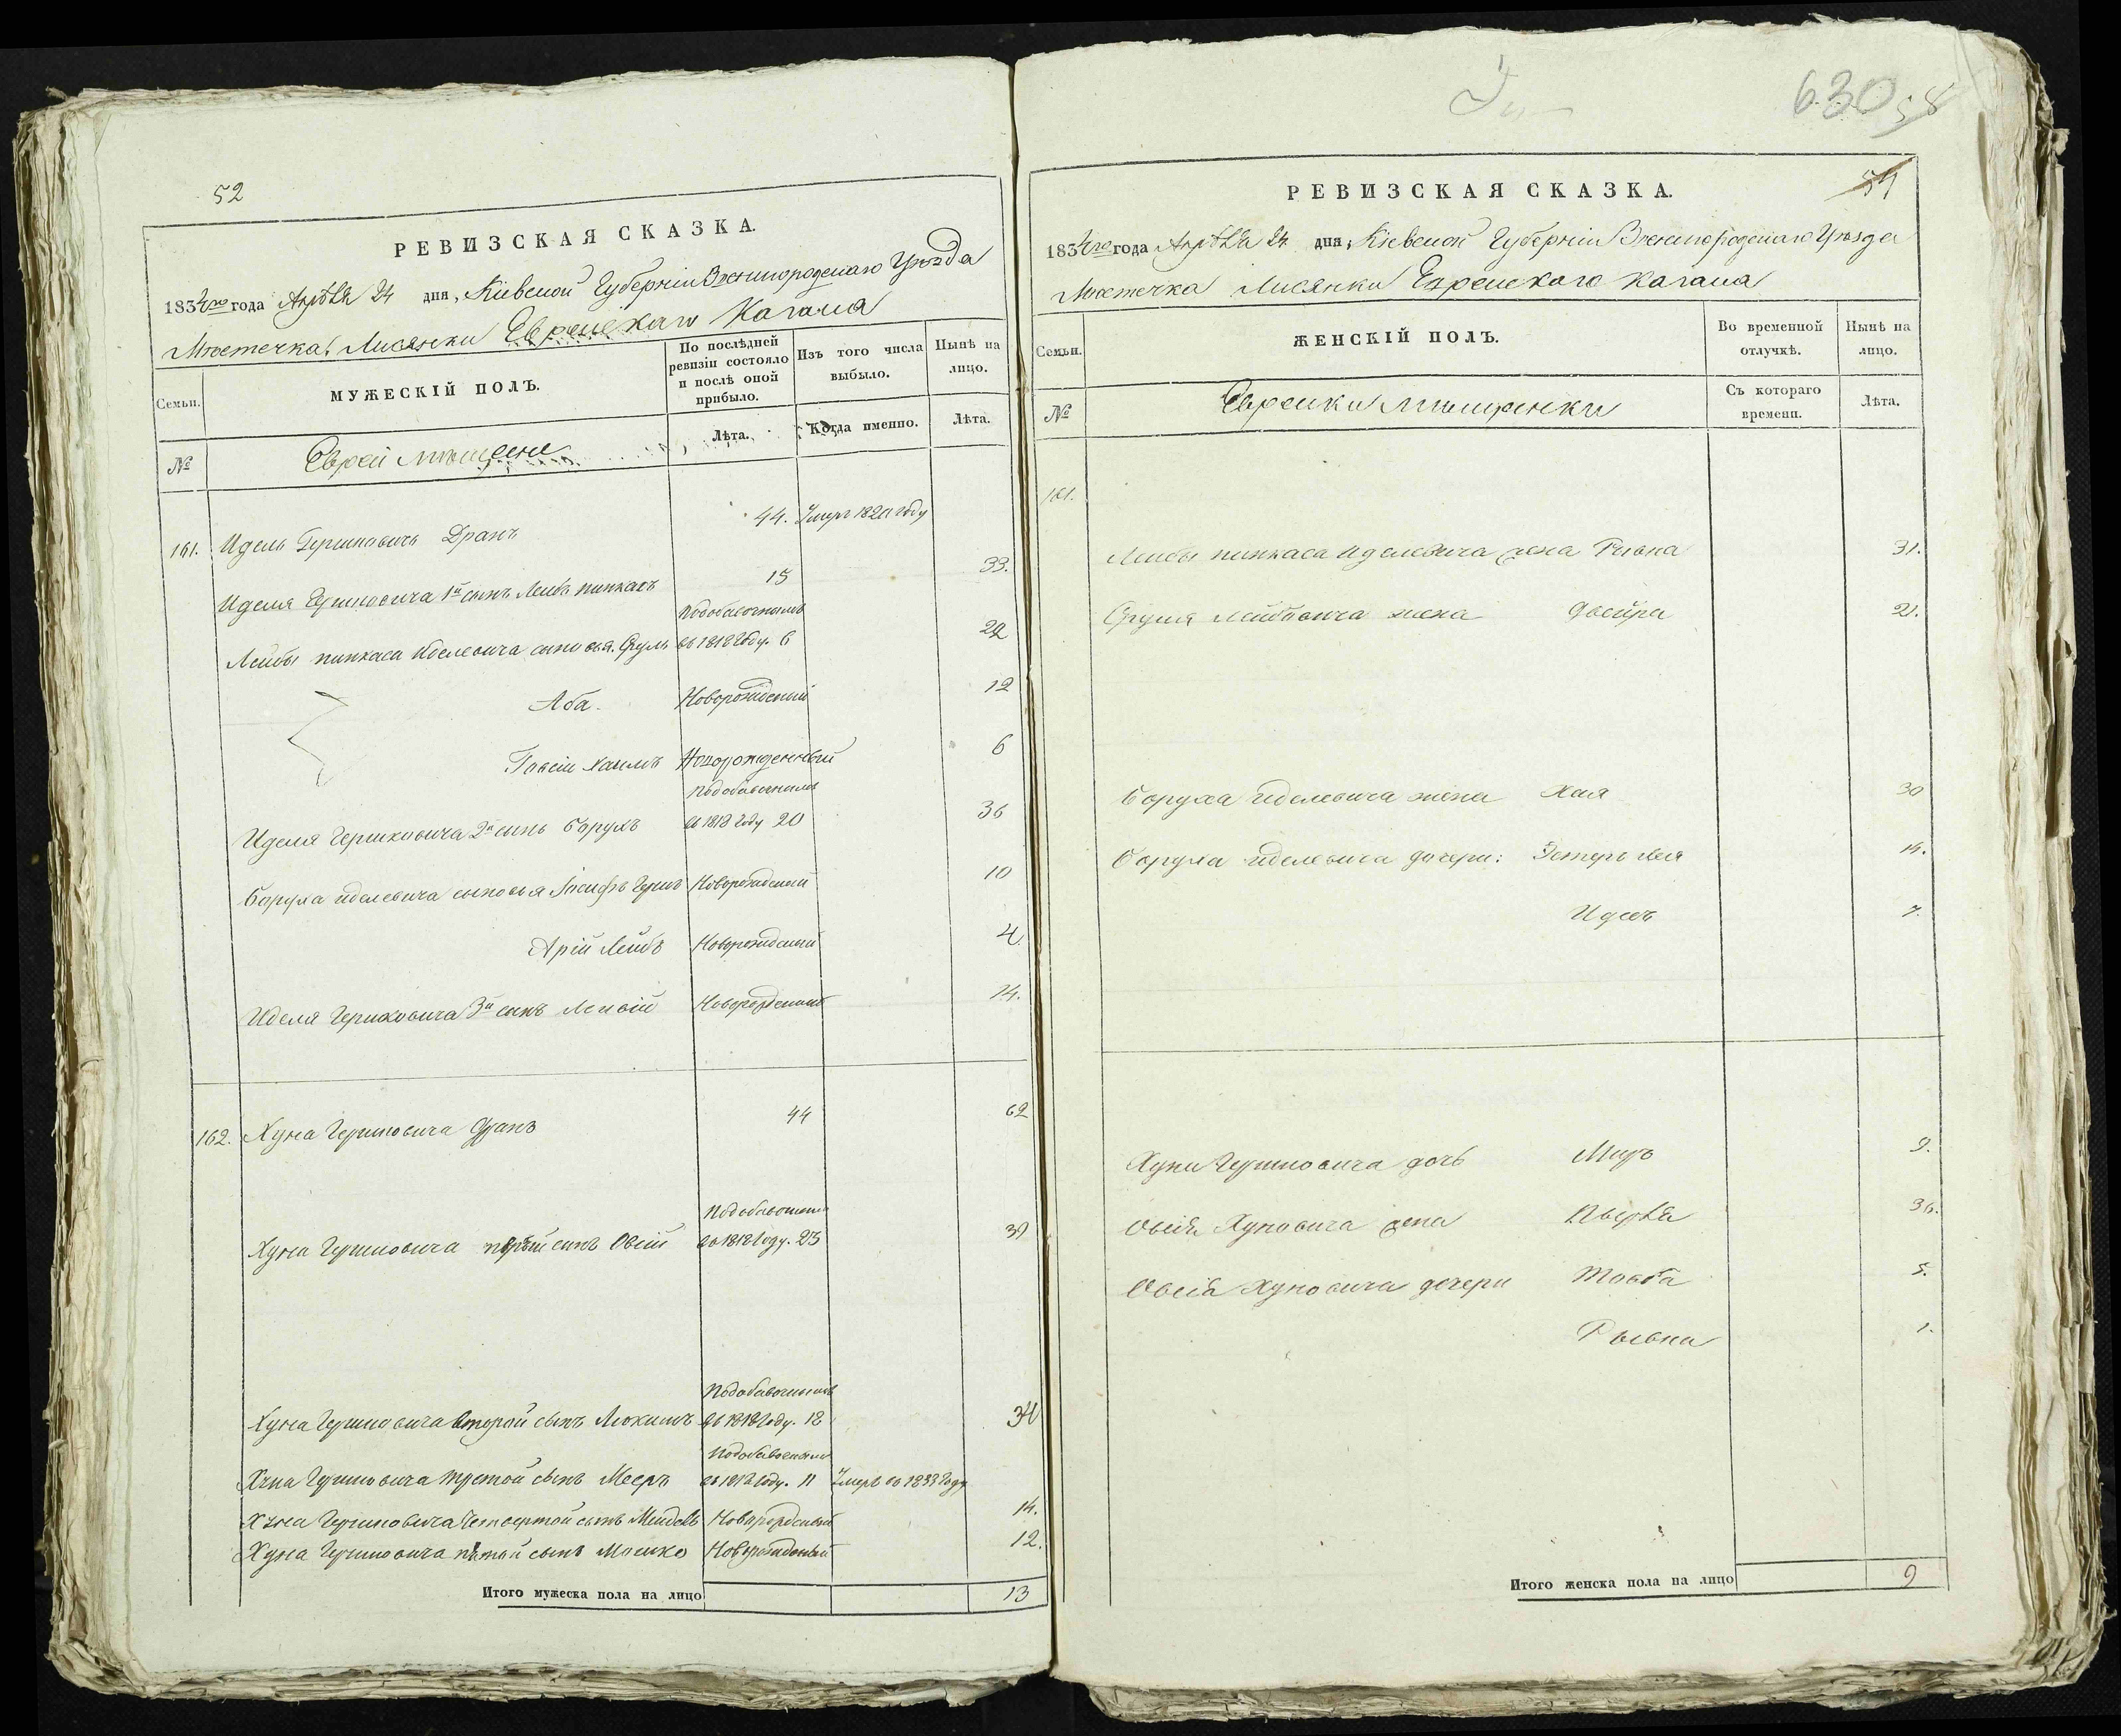 52
РЕВИЗСКАЯ СКАЗКА.
1834го года Апрѣля 24 дня, Кіевской Губерніи Звенигородскаго Уѣзда
Мѣстечка Лисянки Еврейскаго Кагала
Семьи.
МУЖЕСКІЙ ПОЛЪ.
По послѣдней ревизіи состояло и послѣ оной прибыло.
Изъ того числа выбыло.
Нынѣ на лицо.
№
Евреи мѣщане
Лѣта.
Когда именно.
Лѣта.
161. Идель Гершковичъ Дранъ 44. Умеръ 1820 году
Иделя Гершковича 1й сынъ Лейба пинхасъ 15 33.
Лейбы пинхаса Иделевича сыновья. Сруль Подобавочнымъ въ 1818 году. 6 22
Аба. Новорожденный 12
Хаимъ Новорожденный 6
Иделя Гершковича 2й сынъ Борухъ Подобавочнымъ въ 1818 году 20 36
Боруха иделевича сыновья Іосифъ Гершъ Новорожденный 10
Арій Лейбъ Новорожденный 4.
Иделя Гершковича 3й сынъ Новорожденный 14.
162. Хуна Гершковича Дранъ 44 62
Хуна Гершковича первый сынъ Овсій Подобавочнымъ въ 1818 году. 23 39
Хуна Гершковича второй сынъ Подобавочнымъ въ 1818 году. 18 34
Хуна Гершковича третой сынъ Мееръ Подобавочнымъ въ 1818 году. 11 Умеръ въ 1833 году
Хуна Гершковича Четвертой сынъ Мендель Новорожденный 14.
Хуна Гершковича пятый сынъ Мошко Новорожденный 12.
Итого мужеска пола на лицо 13
630
58
54
РЕВИЗСКАЯ СКАЗКА.
1834го года Апрѣля 24 дня, Кіевской Губерніи Звенигородскаго Уѣзда
Мѣстечка Лисянки Еврейскаго Кагала
Семьи.
ЖЕНСКІЙ ПОЛЪ.
Во временной отлучкѣ.
Нынѣ на лицо.
№
Еврейки Мѣщанки
Съ котораго времени.
Лѣта.
161.
Лейбы пинхаса Иделевича жена Ривка 31.
Сруля Лейбовича жена Двейра 21.
Боруха иделевича жена Хая 30
Боруха иделевича дочери: Эстеръ Лея 14.
7.
Хуни Гершковича дочь Миръ 9.
Овсія Хуновича жена 36.
Овсія Хуновича дочери Товба 5.
Рывка 1.
Итого женска пола на лицо 9